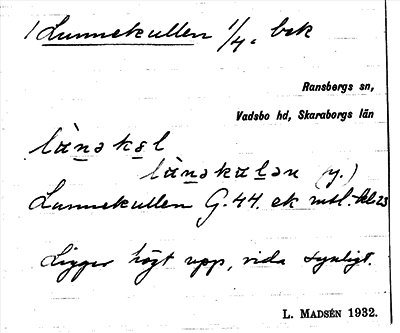 1 Lunnekullen 1/4. bek
Ransbergs sn,
Vadsbo hd, Skaraborgs län
lùnəkəl
lùnəkələn (y.)
Lunnekullen G. 44. ek
Ligger högt upp, vida synligt.
L. MADSÉN 1932.